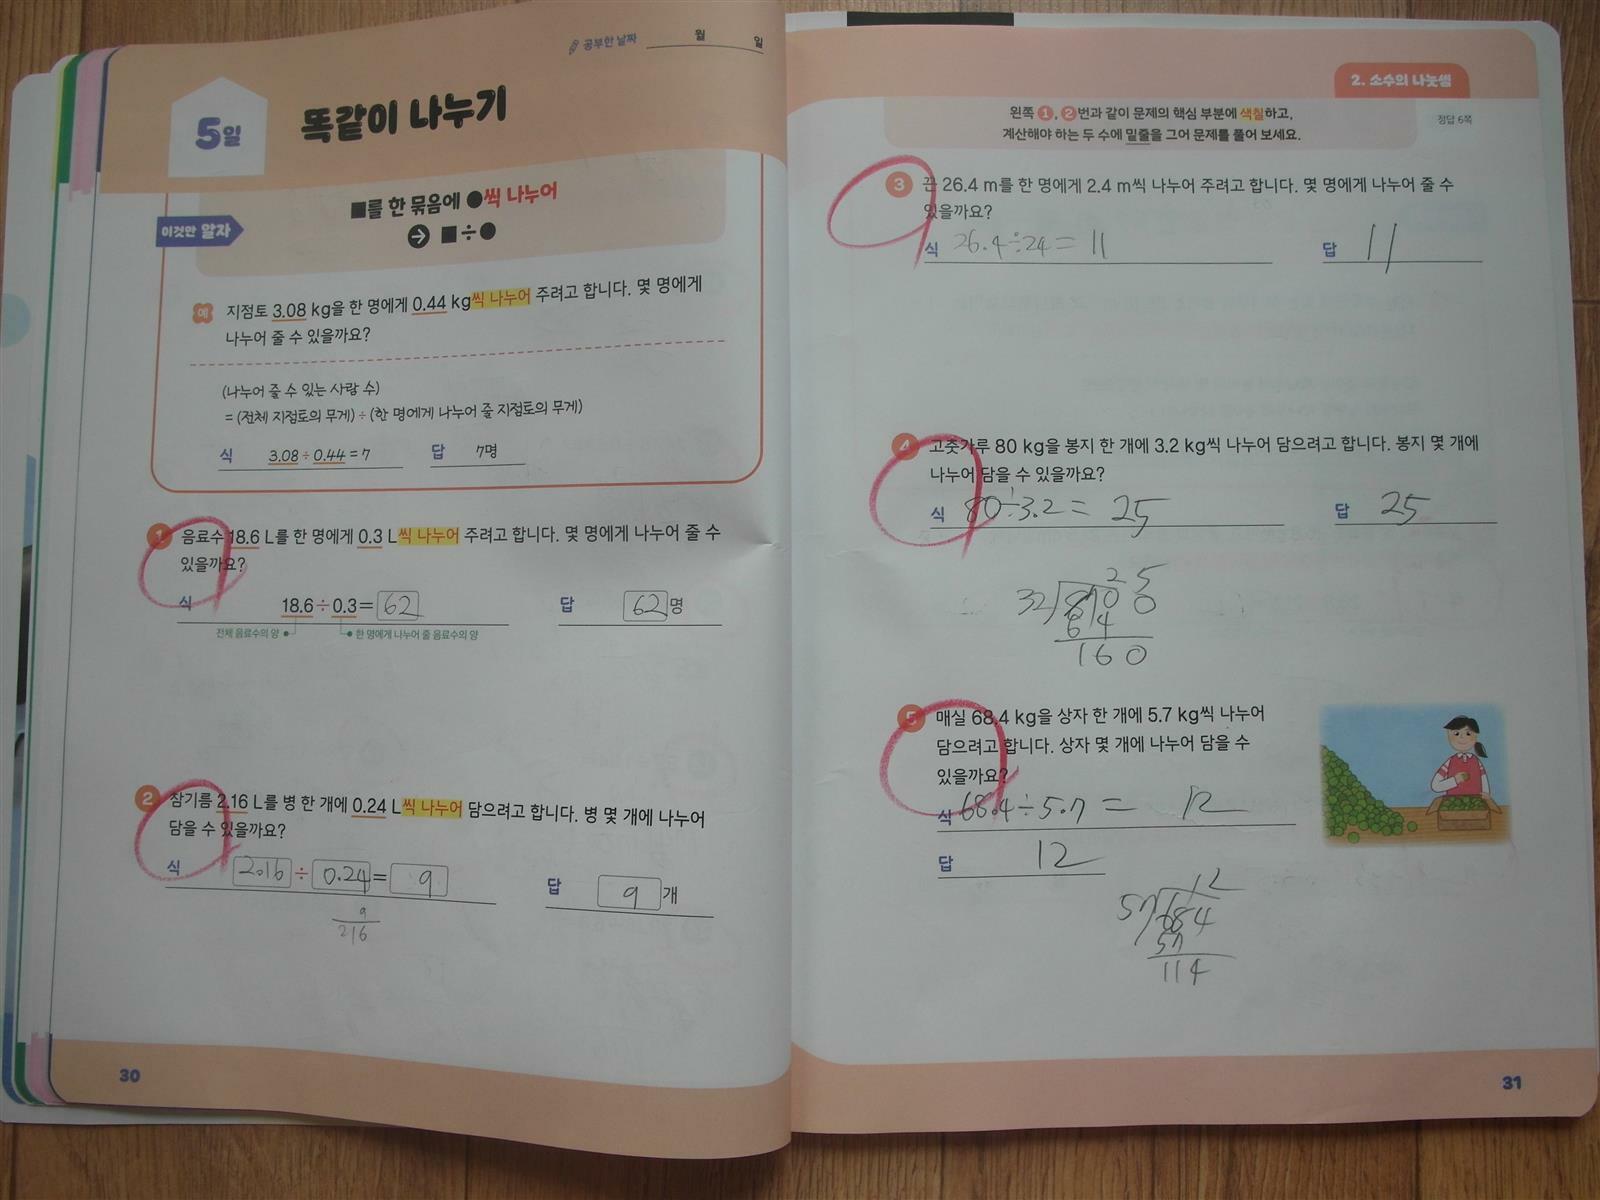 공부한 날짜 월 일
5일 똑같이 나누기
이것만 알자
■를 한 묶음에 ●씩 나누어
→ ■÷●
예 지점토 3.08 kg을 한 명에게 0.44 kg씩 나누어 주려고 합니다. 몇 명에게
나누어 줄 수 있을까요?
(나누어 줄 수 있는 사람 수)
= (전체 지점토의 무게) ÷ (한 명에게 나누어 줄 지점토의 무게)
식 3.08 ÷ 0.44 = 7 답 7명
1 음료수 18.6 L를 한 명에게 0.3 L씩 나누어 주려고 합니다. 몇 명에게 나누어 줄 수
있을까요?
식 18.6 ÷ 0.3 = 62 답 62 명
전체 음료수의 양 한 명에게 나누어 줄 음료수의 양
2 참기름 2.16 L를 병 한 개에 0.24 L씩 나누어 담으려고 합니다. 병 몇 개에 나누어
담을 수 있을까요?
식 2.16 ÷ 0.24 = 9 답 9 개
9
216
30
2. 소수의 나눗셈
왼쪽 1, 2번과 같이 문제의 핵심 부분에 색칠하고,
계산해야 하는 두 수에 밑줄을 그어 문제를 풀어 보세요.
정답 6쪽
3 끈 26.4 m를 한 명에게 2.4 m씩 나누어 주려고 합니다. 몇 명에게 나누어 줄 수
있을까요?
식 26.4÷24= 11 답 11
4 고춧가루 80 kg을 봉지 한 개에 3.2 kg씩 나누어 담으려고 합니다. 봉지 몇 개에
나누어 담을 수 있을까요?
식 80÷3.2= 25 답 25
25
32 800
64
160
5 매실 68.4 kg을 상자 한 개에 5.7 kg씩 나누어
담으려고 합니다. 상자 몇 개에 나누어 담을 수
있을까요?
식 68.4÷5.7= 12
답 12
12
57 684
57
114
31